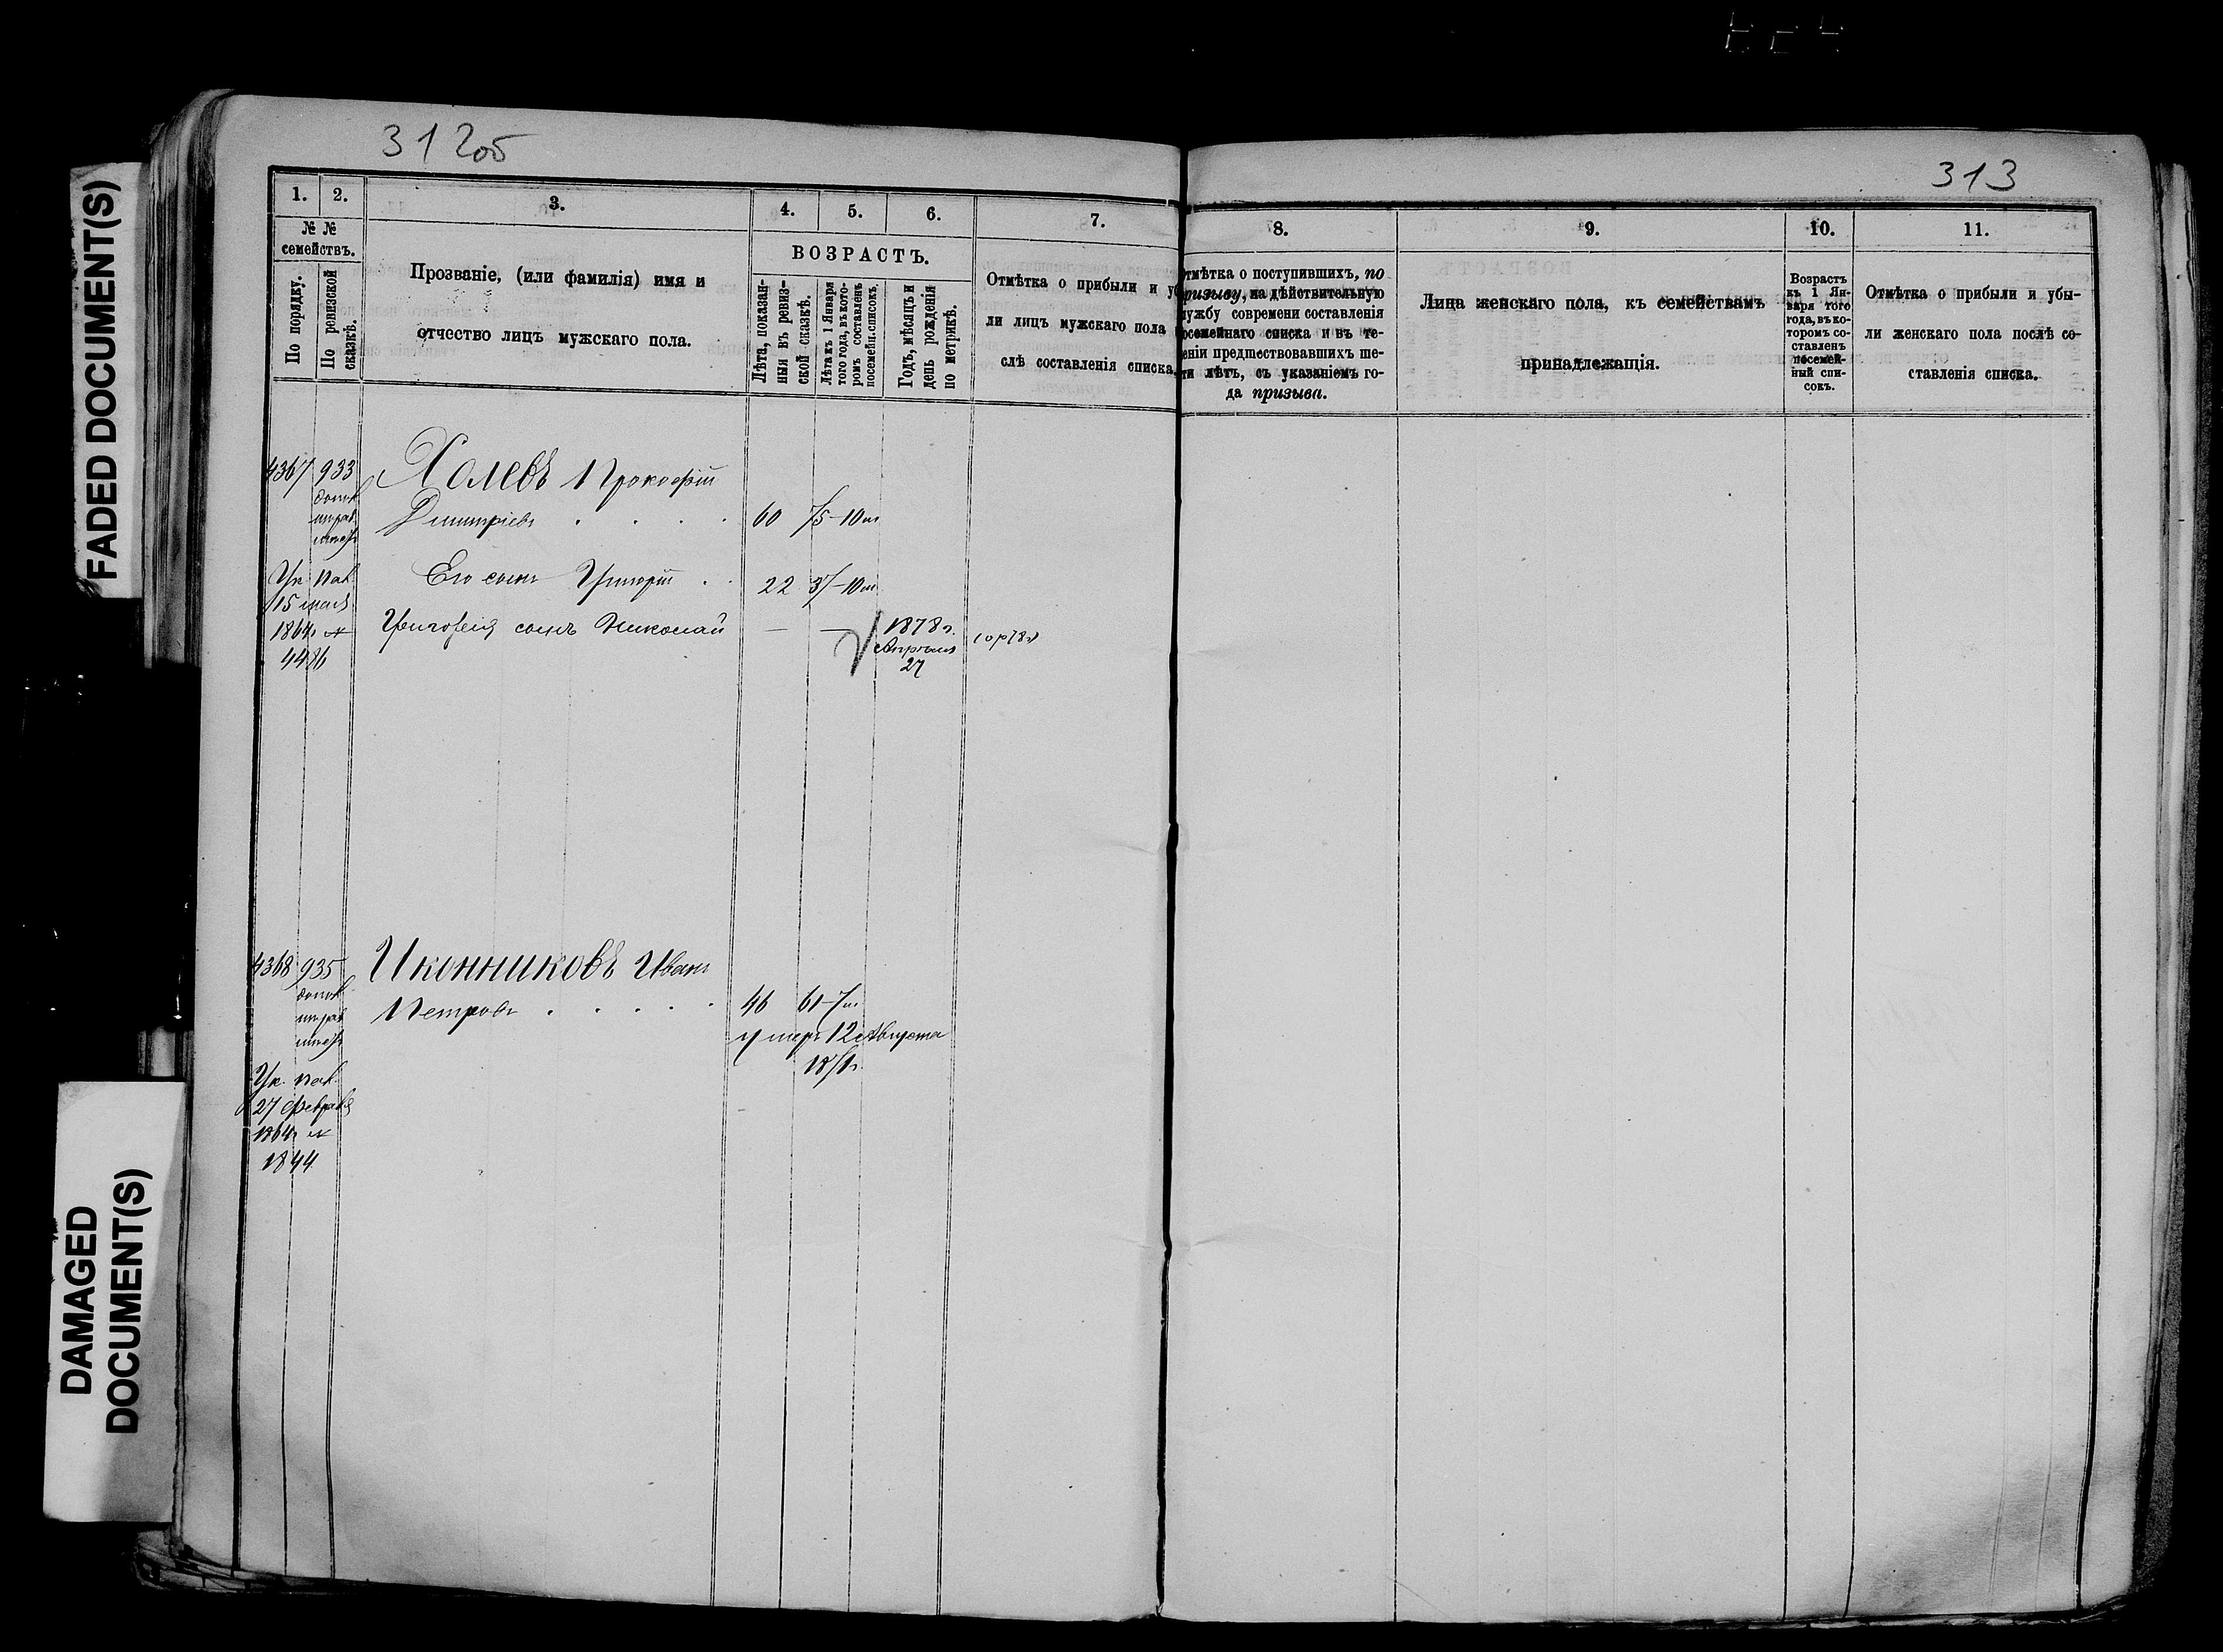 312об
313
FADED DOCUMENT(S)
DAMAGED
DOCUMENT(S)
1. 2. 3. 4. 5. 6. 7.
№ №
семействъ.
По порядку.
По ревизской
сказкѣ.
Прозваніе, (или фамилія) имя и
отчество лицъ мужскаго пола.
ВОЗРАСТЪ.
Лѣта, показан-
ныя въ ревиз-
ской сказкѣ.
Лѣта къ 1 Января
того года, въ кото-
ромъ составленъ
посемейн. списокъ.
Годъ, мѣсяцъ и
день рожденія
по метрикѣ.
Отмѣтка о прибыли и у
ли лицъ мужскаго пола
слѣ составленія списка.
8. 9. 10. 11.
тмѣтка о поступившихъ, по
ризыву, на дѣйствительную
ужбу современи составленія
осемейнаго списка и въ те-
еніи предшествовавшихъ ше-
ти лѣтъ, съ указаніемъ го-
да призыва.
Лица женскаго пола, къ семействамъ
принадлежащія.
Возрастъ
къ 1 Ян-
варя того
года, въ ко-
торомъ со-
ставленъ
посемей-
ный спи-
сокъ.
Отмѣтка о прибыли и убы-
ли женскаго пола послѣ со-
ставленія списка.
4367 933 Холевъ Прокофій
Димитріевъ 60 75-10м
Его сынъ Григорій 22 37-10м
Григорія сынъ Николай — — 1878г.
Апрѣля
27
Ук. Пал.
15 мая
1864г. №
4486
4368 935 Иконниковъ Иванъ
Петровъ 46 61-7м.
умеръ 12 Августа
Ук. Пал.
27 Февраля
1864г. №
1844